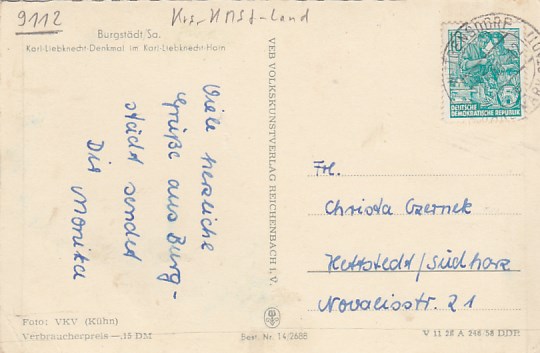 9112
Burgstädt/Sa.
Karl-Liebknecht-Denkmal im Karl-Liebknecht-Hain
Viele herzliche
Grüße aus Burg-
städt sendet
Dir Monika
VEB VOLKSKUNSTVERLAG REICHENBACH I. V.
10
DEUTSCHE
DEMOKRATISCHE REPUBLIK
Frl.
Christa Czernek
Hettstedt/Südharz
Novalisstr. 21
Foto: VKV (Kühn)
Verbraucherpreis —,15 DM
Best. Nr. 14/2688
V 11 28 A 246-58 DDR